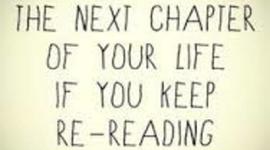 THE NEXT CHAPTER
OF YOUR LIFE
IF YOU KEEP
RE-READING